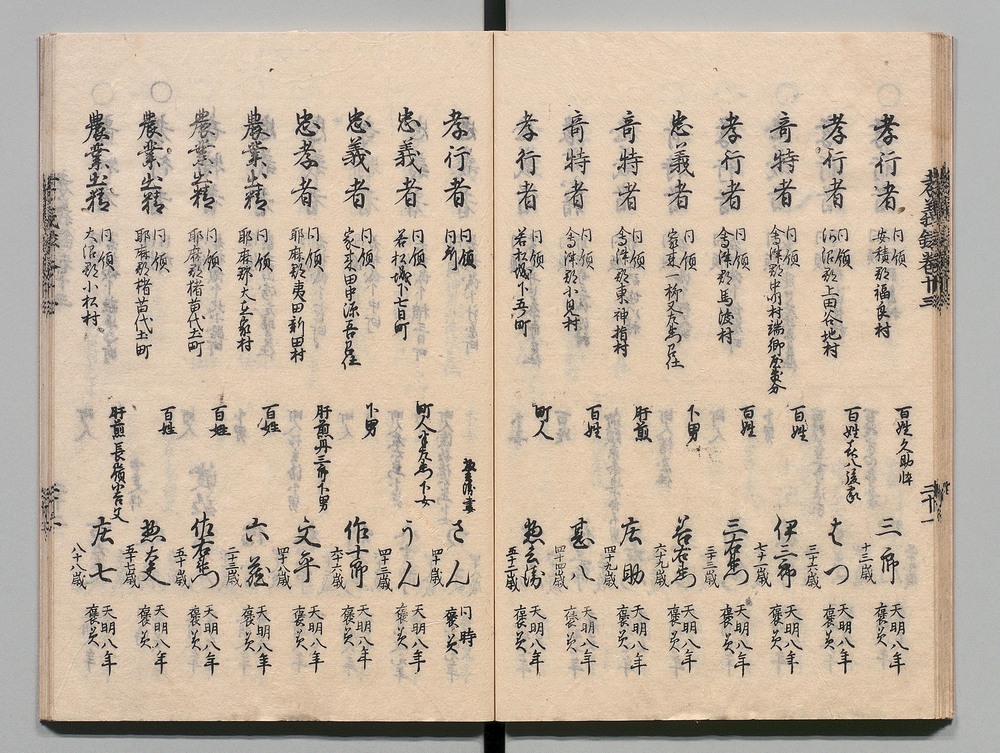 孝義録巻廿三
二十一
孝行者
同領
安積郡福良村
百姓久助悴
三郎
十三歳
天明八年
褒美
孝行者
同領
河沼郡上田谷地村
百姓喜八後家
はつ
三十六歳
天明八年
褒美
奇特者
同領
会津郡中明村端郷
百姓
伊三郎
七十一歳
天明八年
褒美
孝行者
同領
会津郡馬渡村
百姓
三右衛門
三十三歳
天明八年
褒美
忠義者
同領
家来一柳
下男
若右衛門
六十九歳
天明八年
褒美
奇特者
同領
会津郡東神指村
肝煎
庄助
四十九歳
天明八年
褒美
奇特者
同領
会津郡小見村
百姓
甚八
四十四歳
天明八年
褒美
孝行者
同領
若松城下
町人
惣兵衛
五十二歳
天明八年
褒美
孝行者
同領
同所
惣兵衛妻
さん
四十歳
同時
褒美
忠義者
同領
若松城下七日町
町人
下女
うん
四十三歳
天明八年
褒美
忠義者
同領
家来田中源吾召仕
下男
作十郎
六十六歳
天明八年
褒美
忠孝者
同領
耶麻郡夷田新田村
肝煎丹三郎下男
文平
四十八歳
天明八年
褒美
農業出精
同領
耶麻郡大立家村
百姓
六蔵
二十三歳
天明八年
褒美
農業出精
同領
耶麻郡猪苗代土町
百姓
佐右衛門
五十歳
天明八年
褒美
農業出精
同領
耶麻郡猪苗代土町
百姓
惣
五十七歳
天明八年
褒美
農業出精
同領
大沼郡小松村
肝煎長嶺
父
庄七
八十八歳
天明八年
褒美